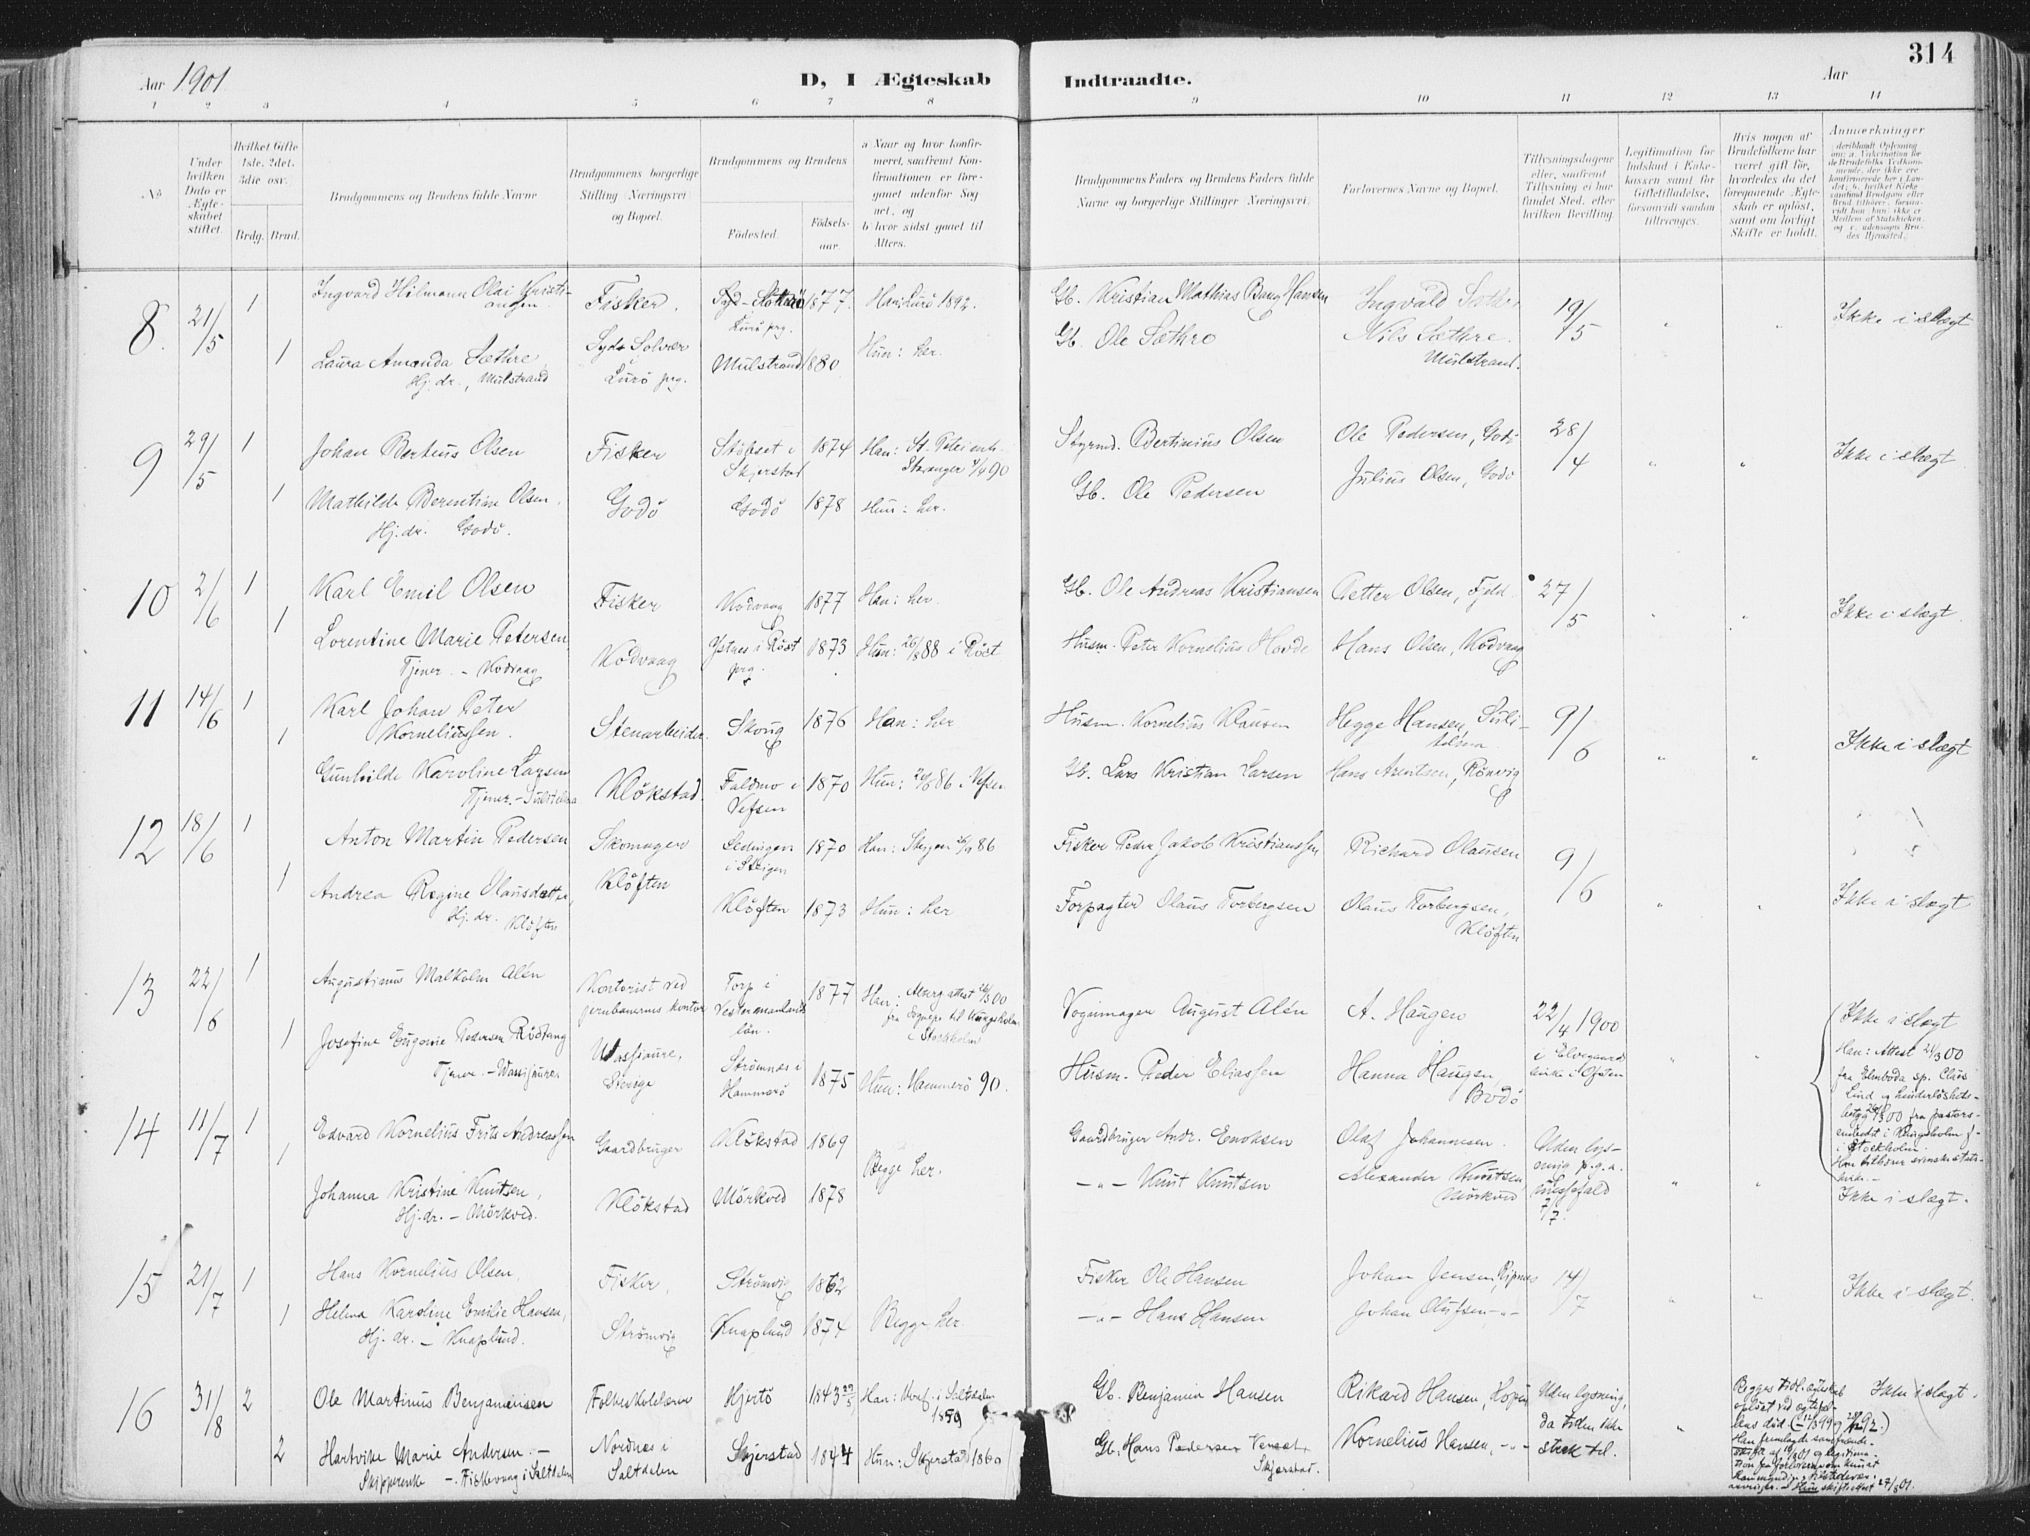 314
Aar 1901
D, I Ægteskab
Indtraadte.
Aar
1 2 3 4 5 6 7 8 9 10 11 12 13 14
No
Under hvilken Dato er Ægteskabet stiftet.
Hvilket Gifte 1ste, 2det, 3die osv.
Brdg. Brud.
Brudgommens og Brudens fulde Navne
Brudgommens borgerlige Stilling (Næringsvei) og Bopæl.
Brudgommens og Brudens
Fødested.
Fødsels-aar.
a Naar og hvor konfirmeret, saafremt Konfirmationen er foregaaet udenfor Sognet, og
b hvor sidst gaaet til Alters.
Brudgommens Faders og Brudens Faders fulde Navne og borgerlige Stillinger (Næringsvei).
Forlovernes Navne og Bopæl.
Tillysningsdagene eller, saafremt Tillysning ei har fundet Sted, efter hvilken Bevilling.
Legitimation for Indskud i Enkekassen samt for Giftetilladelse, forsaavidt saadan tiltrænges.
Hvis nogen af Brudefolkene har været gift før, hvorledes da det foregaaende Ægteskab er opløst, samt om lovligt Skifte er holdt.
Anmærkninger
8. 21/5 1
Ingvard Hilmann Olai Kristiansen
Fisker.
1877.
Han: Lurö 1892.
Gb. Kristian Mathias Bang Hansen
19/5
Ikke i slægt
1 Laura Amanda Sæthre
Hj. dr., Mulstrand
Lurö prg.
Mulstrand 1880
Hun: her.
Gb. Ole Sæthre
Nils Sæthre
Mulstrand.
9 29/5 1
Johan Berteus Olsen
Fisker
Skjerstad
1874
Stavanger
Styrmd. Bertinius Olsen
Ole Pedersen, Godö
28/4
Ikke i slægt
1 Mathilde Berentine Olsen.
Hj. dr. Godö.
Godö
Godö 1878
Hun: her.
Gb. Ole Pedersen
Julius Olsen, Godö
10 2/6 1
Karl Emil Olsen
Fisker
Kodvaag 1877
Han: her.
Gb. Ole Andreas Kristiansen
Petter Olsen, Fjeld.
27/5
Ikke i slægt
1 Lorentine Marie Petersen
Tjener. - Kodvaag
Kodvaag
Ystnes i Röst prg. 1873
Hun: 26/8 88 i Röst
Husm. Peter Kornelius Hovde
Hans Olsen, Kodvaag
11 14/6 1
Karl Johan Peter Korneliussen.
Stenarbeider.
Skoug 1876
Han: her
Husm. Kornelius Klausen
Hegge Hansen, Sulitelma
9/6
Ikke i slægt
1 Gunhilde Karoline Larsen
Tjener. - Sulitelma
Klökstad.
Faldmo i Vefsen 1870
Gb. Lars Kristian Larsen
Hans Arntsen, Rönvig
12 18/6 1
Anton Martin Pedersen
Skomager
i Steigen
1870
Fisker Peder Jakob Kristianssen
Richard Olausen
9/6
Ikke i slægt
1 Andrea Regine Olausdatter,
Hj. dr. Klöften
Klöften
Klöften 1873
Hun: her
Forpagter Olaus Torbergsen
Olaus Torbergsen, Klöften
13 22/6 1
Augustinus Malkolm Alén
Kontorist ved jernbanernes kontor
Torp i Vestermanlands län.
1877
i Stockholm
Vognmager August Alén
A. Haugen
22/4 1900
Ikke i slægt
Han: Attest 21/3 00
1 Josefine Eugenie Pedersen Rödtang
Tjener. - Wassijaure
Wassijaure, Sverige
Strømnæs i Hammerö 1875
Hun: Hammerö 90.
Husm. Peder Eliassen
Hanna Haugen, Bodö
14 11/7 1
Edvard Kornelius Frits Andreassen
Gaardbruger
Klökstad 1869
Begge her.
Gaardbruger Andr. Enoksen
Olaf Johannesen.
Uden lysning p.g.a.
7/7.
1 Johanna Kristine Knutsen,
Hj. dr. - Mörkved.
Klökstad
Mörkved 1878
-"- Knut Knutsen
Alexander Knutsen Mörkved
Ikke i slægt.
15 21/7 1
Hans Kornelius Olsen,
Fisker,
Strömvig 1862
Fisker Ole Hansen
Johan Jensen, Ripnes
14/7
Ikke i slægt.
1 Helma Karoline Emilie Hansen,
Hj. dr. - Knaplund.
Strömvig
Knaplund 1874
Begge her.
-"- Hans Hansen
Johan Olufsen -"-
16 31/8 2
Ole Martinus Benjaminsen
Folkeskolelærer
Hjertö
1843
Han: Konf. i Saltdalen 1859
Gb. Benjamin Hansen
Rikard Hansen,
Uden lysning, da tiden ikke strak til.
Ikke i slægt.
2 Hartvikke Marie Andersen -
Skipperenke - Fiskevaag i Saltdalen
Nordnes i Saltdalen
Skjerstad 1844
Hun: Skjerstad 1860
Gb. Hans Pedersen
Skjerstad.
Kornelius Hansen, -"-